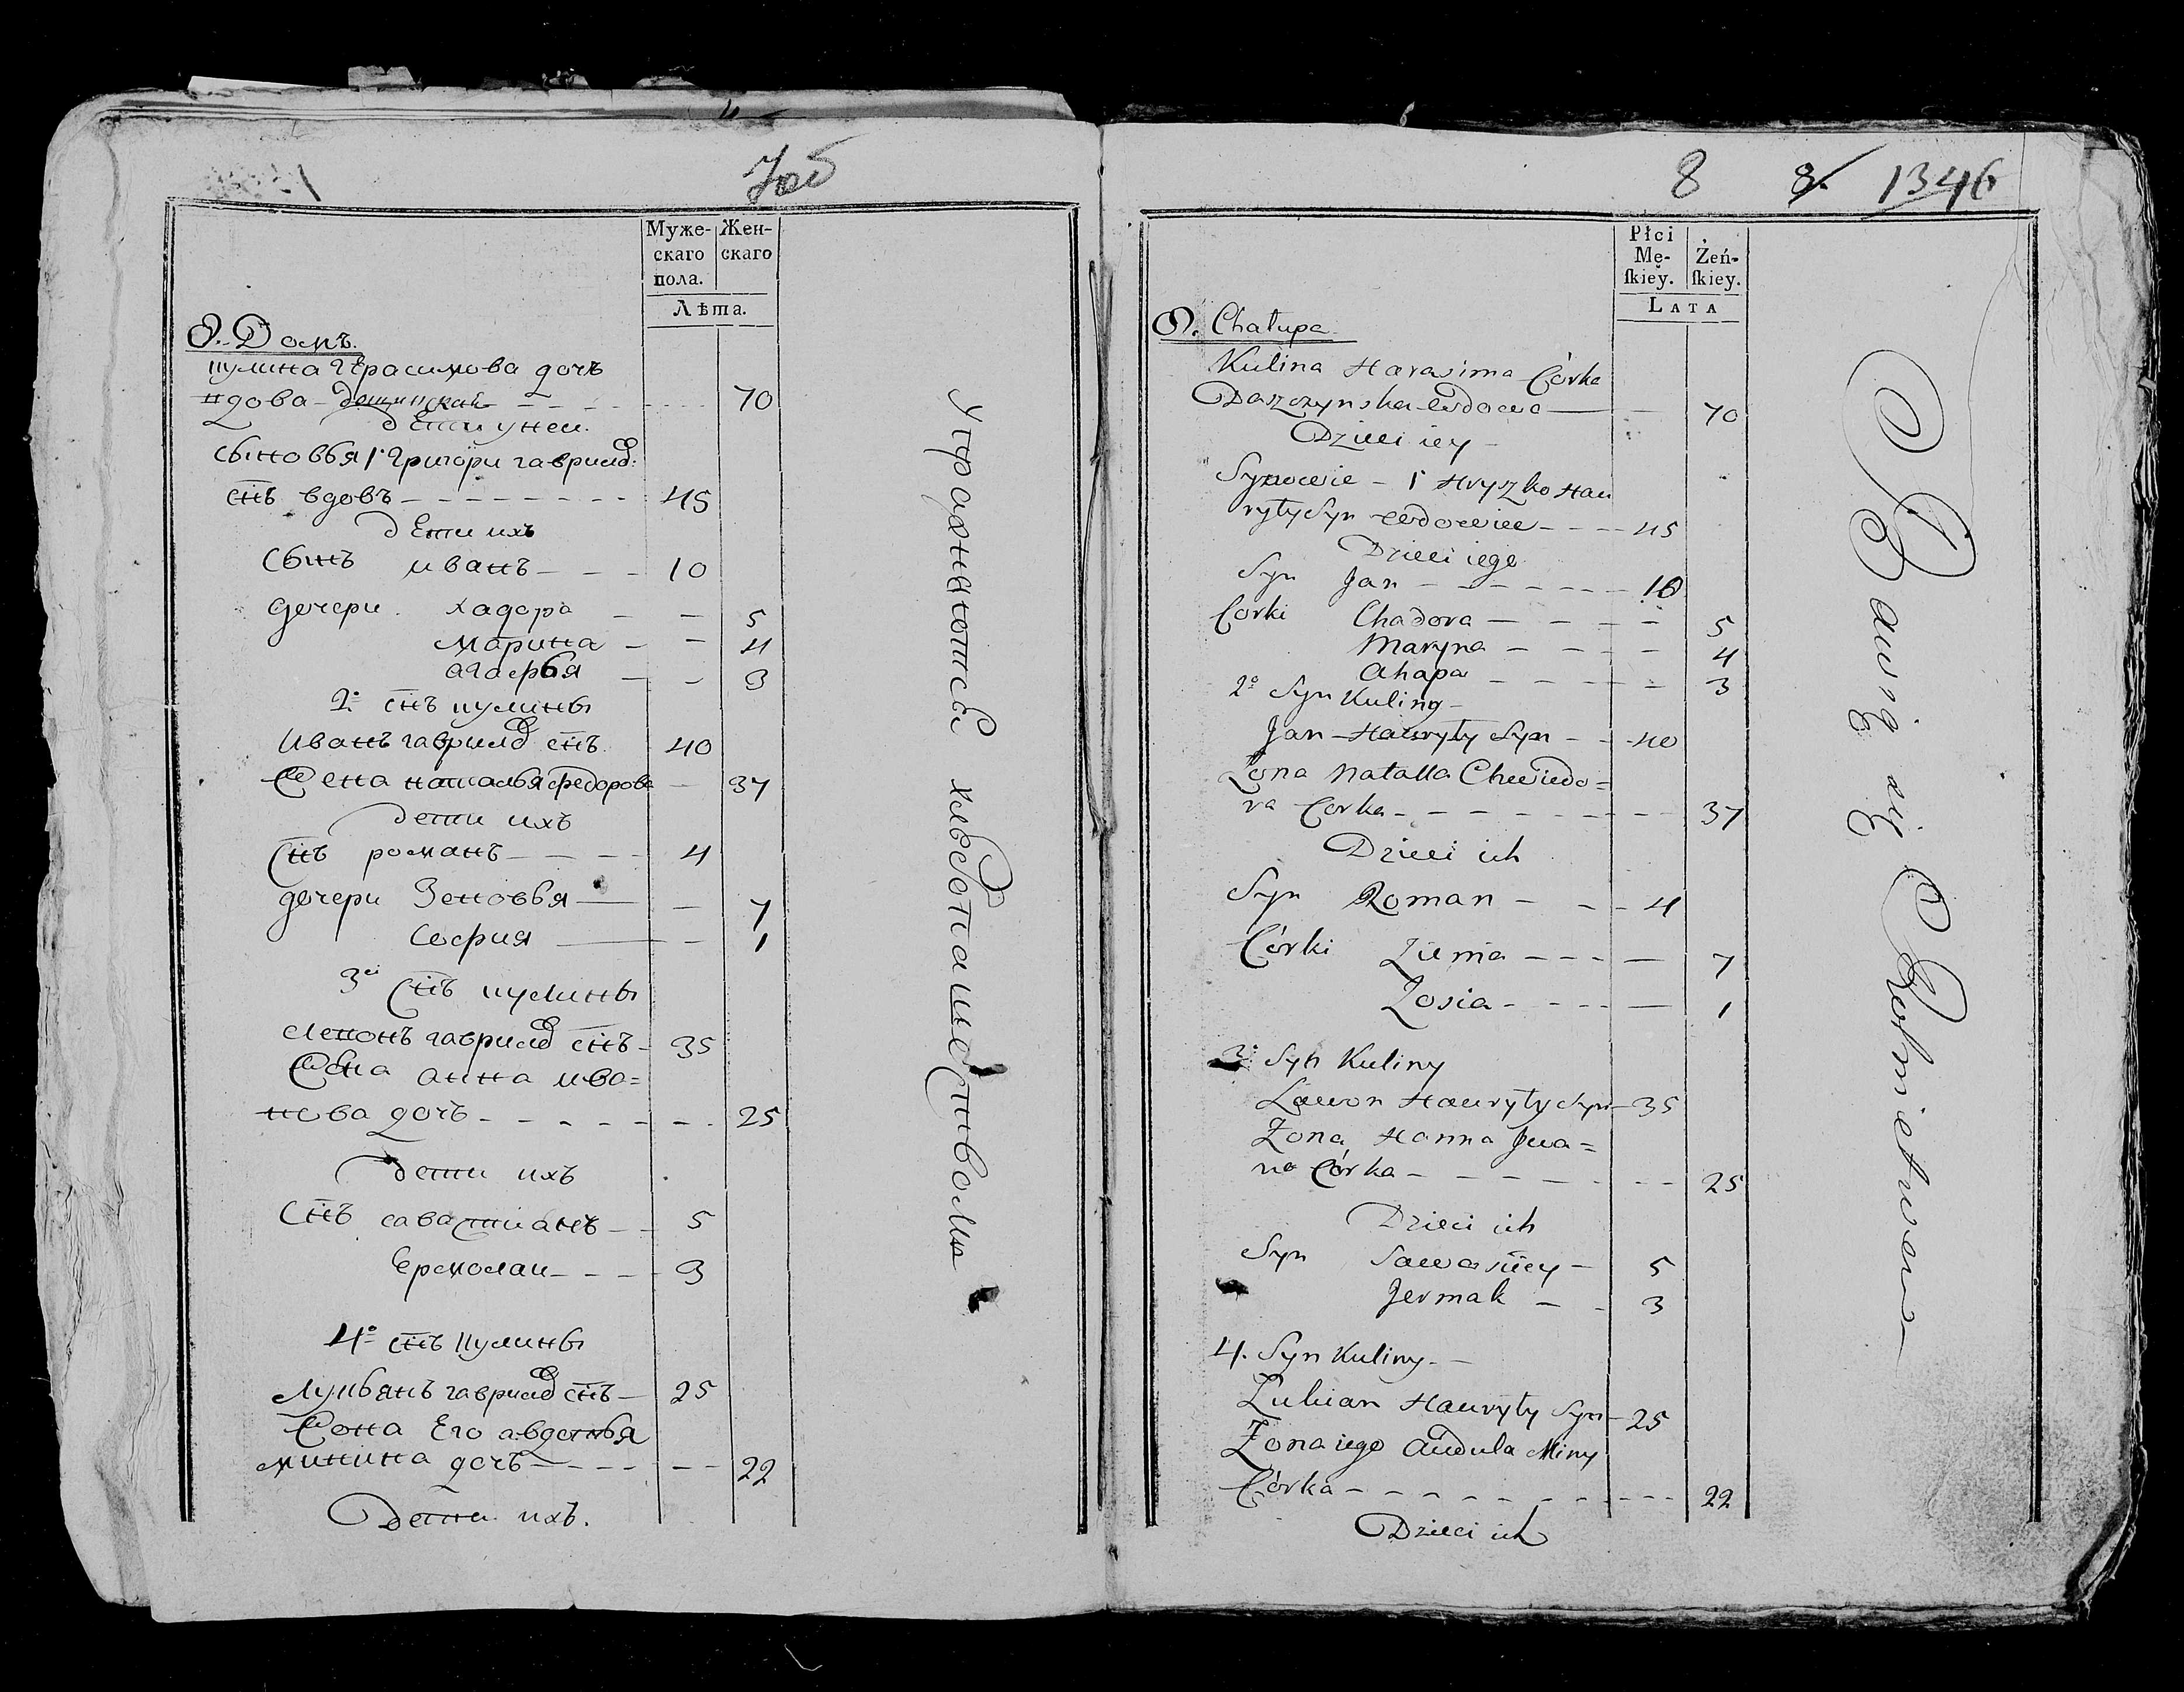 7об
Муже-
скаго
пола.
Жен-
скаго
Лѣта.
9. Домъ.
кулина Герасимова дочь
вдова
70
дети у неи.
сыновья 1. Григори гаврило:
снъ вдовъ 45
дети ихъ
сынъ иванъ 10
дочери. хадора 5
марина 4
агафья 3
2.о снъ кулины
Иванъ гаврило снъ. 40
Жена наталья федорова 37
дети ихъ
снъ романъ 4
дочери Зеновья 7
София 1
3.й снъ кулины
Левонъ гаврило снъ 35
Жена анна ива=
нова дочь 25
дети ихъ
снъ савастианъ 5
Ермолаи 3
4.о снъ кулины
лукьянъ гаврило снъ 25
Жона Его авдотья
минина дочь 22
Дети ихъ.
Упражняются хлебопашеством
8 8. 1346
Płci
Mę-
ſkiey.
Żeń-
ſkiey.
Lata
9. Chałupa
Kulina Harasima Córka
Daszczynska wdowa 70
Dzieci iey
Synowie 1 Hryszko Haw
ryły Syn wdowiec 45
Dzieci iego
Syn Jan 10
Corki Chadora 5
Maryna 4
Ahapa 3
2.o Syn Kuliny
Jan Hawryły Syn 40
Żona Natalla Chwiedo=
ra Corka 37
Dzieci ich
Syn Roman 4
Córki Zienia 7
Zosia 1
3. Syn Kuliny
Lawon Hawryły Syn 35
Żona Hanna Jwa=
na Córka 25
Dzieci ich
Syn Sawasciey 5
Jermak 3
4. Syn Kuliny.
Łukian Hawryły Syn 25
Żona iego Audula Miny
Córka 22
Dzieci ich
Bawią się Rolnictwem